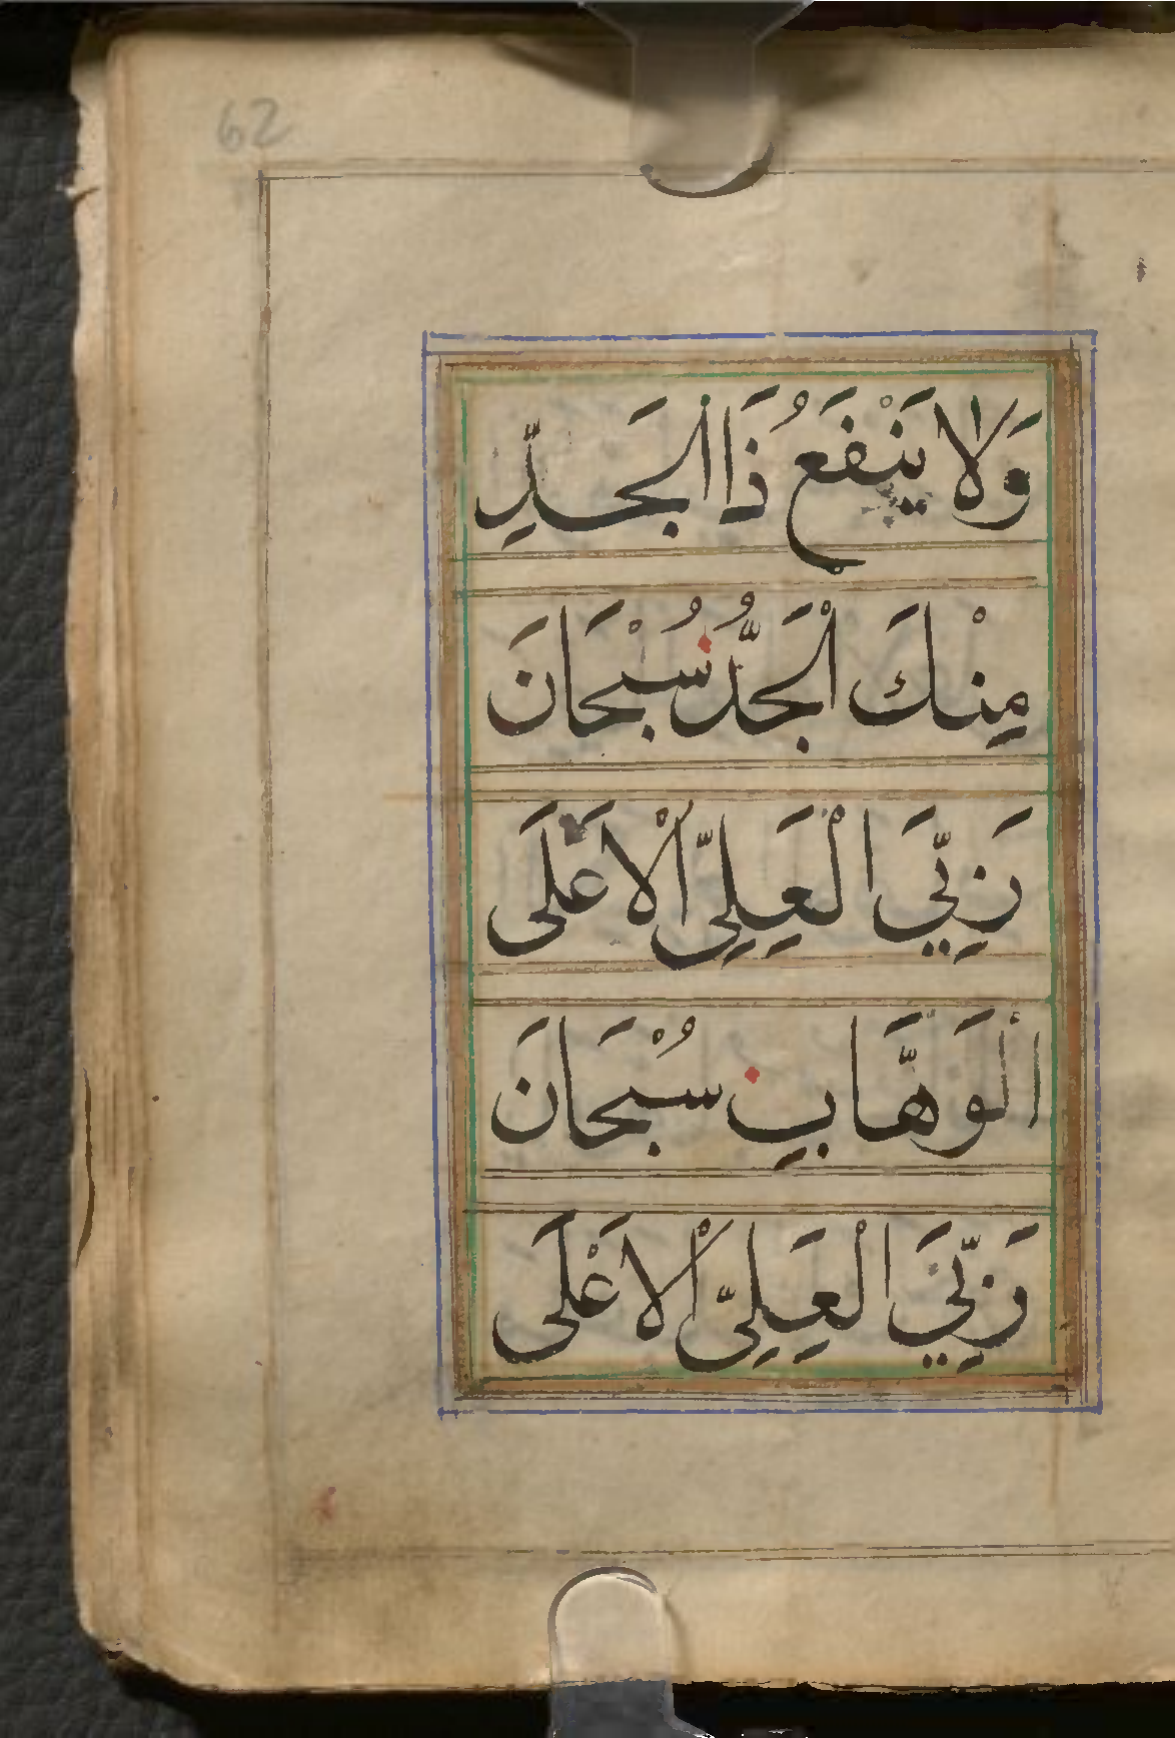 62
وَلَا يَنْفَعُ ذَا الْجَدِّ
مِنْكَ الْجَدُّ سُبْحَانَ
رَبِّيَ الْعَلِيِّ الْاَعْلَى
الْوَهَّابِ سُبْحَانَ
رَبِّيَ الْعَلِيِّ الْاَعْلَى